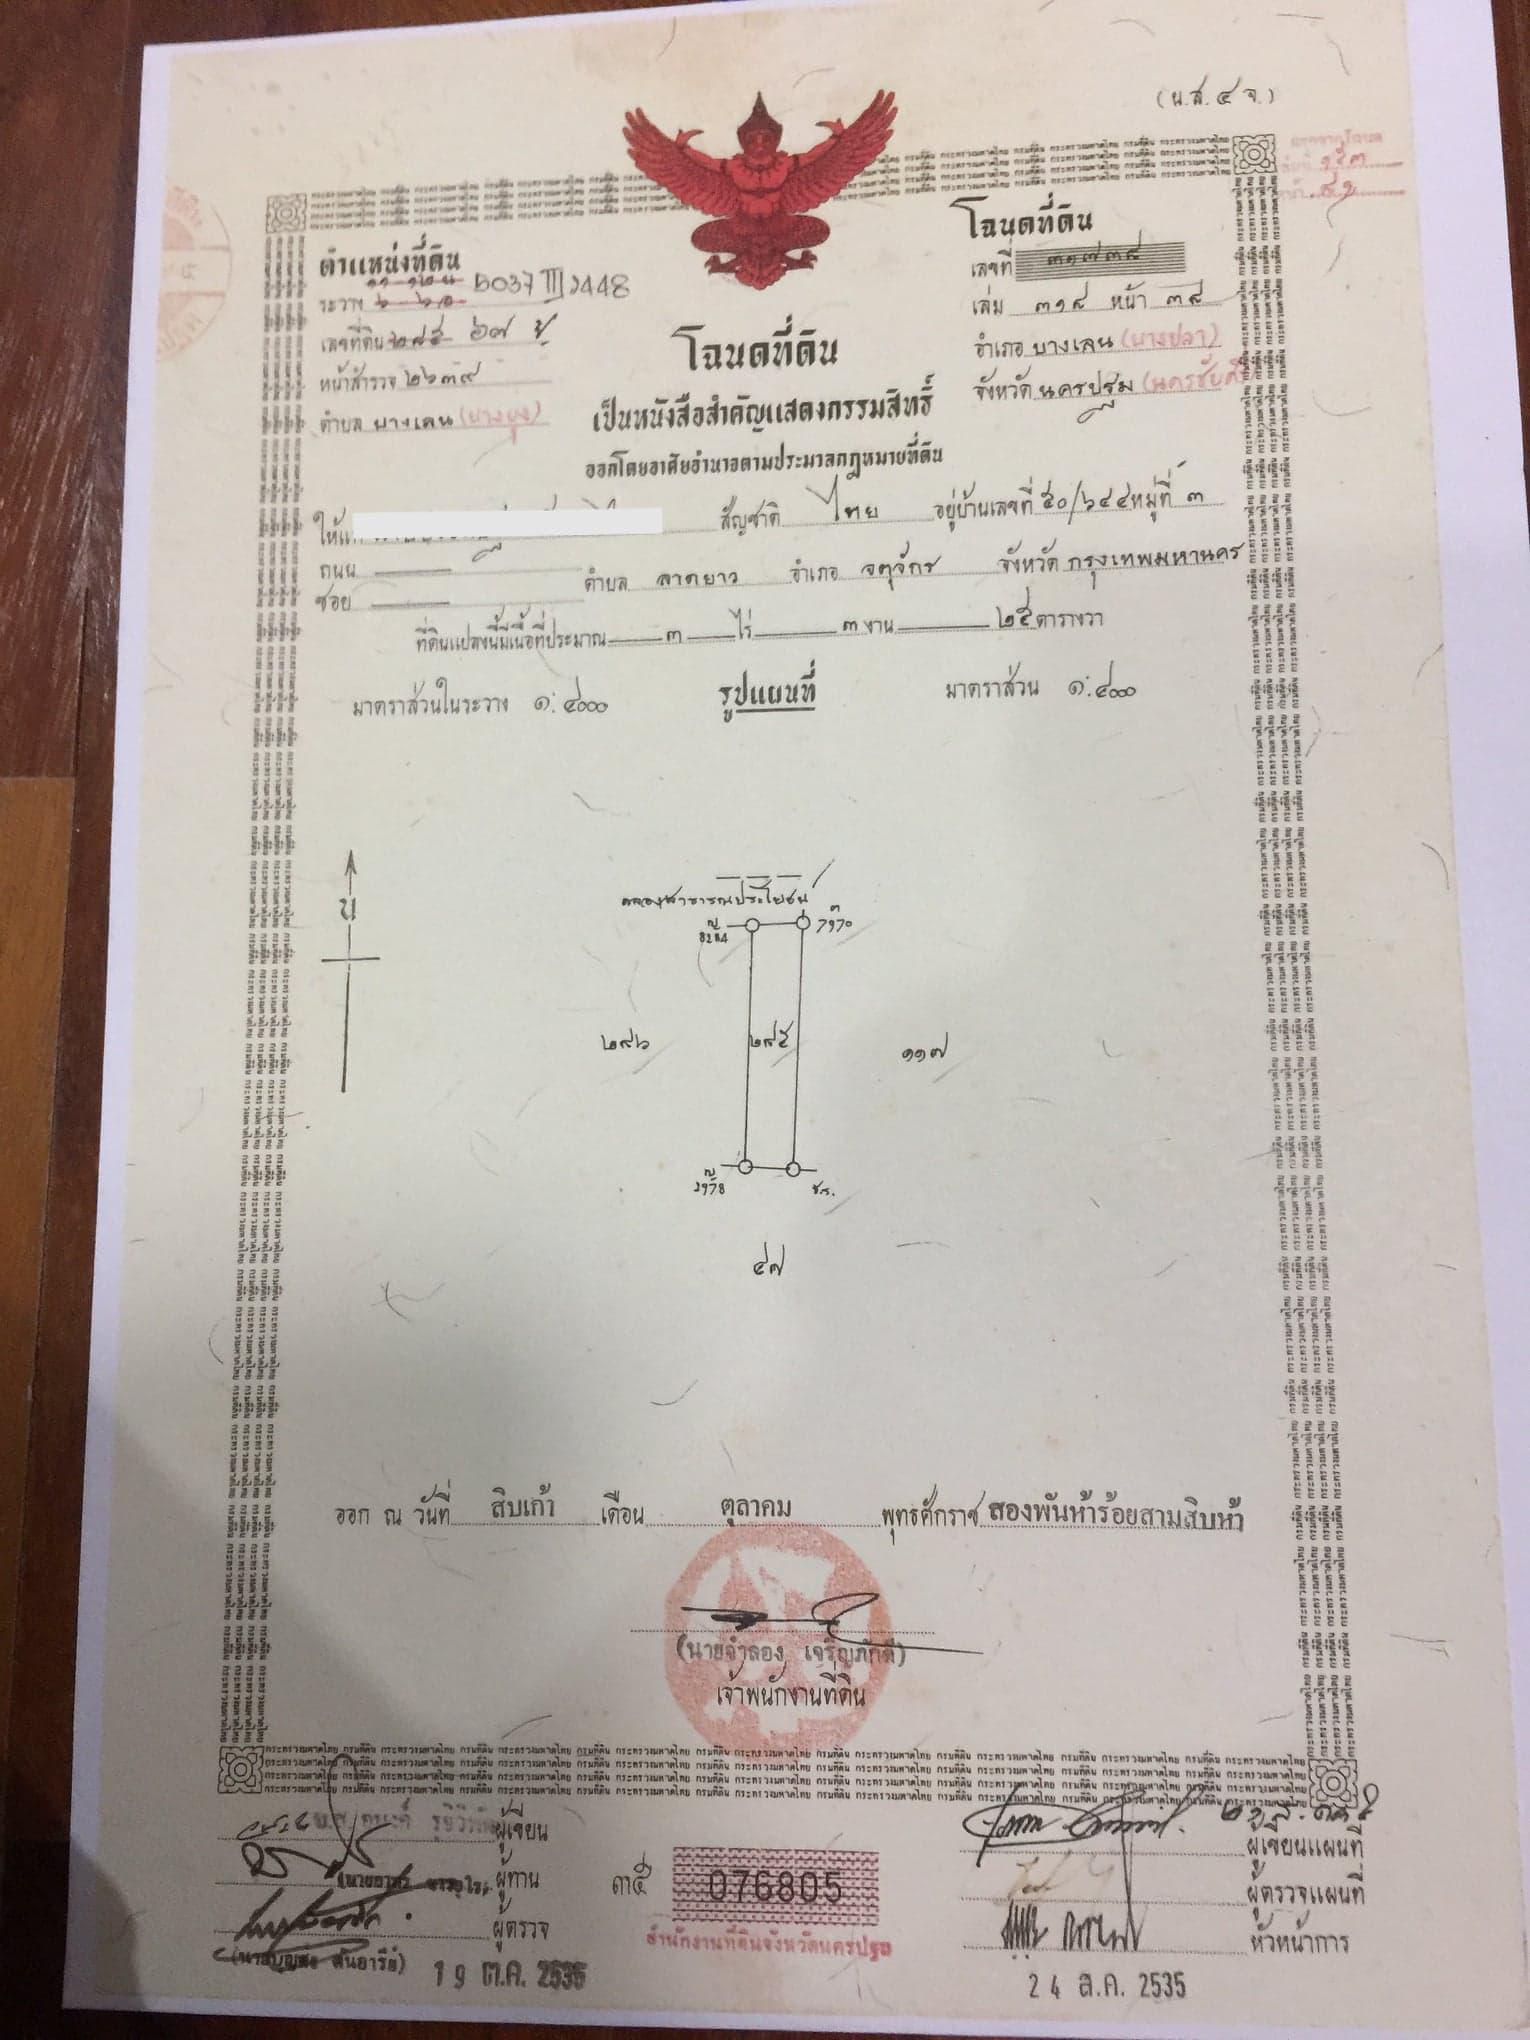 (น.ส. ๔ จ.)
ตำแหน่งที่ดิน
ระวาง 5037 III 2448
เลขที่ดิน ๒๘๕ ๖๗
หน้าสำรวจ ๒๖๓๙
ตำบล บางเลน
โฉนดที่ดิน
เลขที่ ๓๑๗๓๘
เล่ม ๓๑๘ หน้า ๓๘
อำเภอ บางเลน (บางปลา)
จังหวัด นครปฐม (นครชัยศรี)
โฉนดที่ดิน
เป็นหนังสือสำคัญแสดงกรรมสิทธิ์
ออกโดยอาศัยอำนาจตามประมวลกฎหมายที่ดิน
ให้แก่ สัญชาติ ไทย อยู่บ้านเลขที่ ๕๐/๖๔๔ หมู่ที่ ๓
ถนน
ซอย ตำบล ลาดยาว อำเภอ จตุจักร จังหวัด กรุงเทพมหานคร
ที่ดินแปลงนี้มีเนื้อที่ประมาณ ๓ ไร่ ๓ งาน ๒๕ ตารางวา
มาตราส่วนในระวาง ๑:๔๐๐๐ รูปแผนที่ มาตราส่วน ๑:๔๐๐๐
น
คลองสาธารณประโยชน์
7970
๒๘๖ ๒๘๕ ๑๑๗
๔๗
ออก ณ วันที่ สิบเก้า เดือน ตุลาคม พุทธศักราช สองพันห้าร้อยสามสิบห้า
(นายจำลอง เจริญภักดี)
เจ้าพนักงานที่ดิน
ผู้เขียน
ผู้ทาน
ผู้ตรวจ
19 ต.ค. 2535
๓๕ 076805
สำนักงานที่ดินจังหวัดนครปฐม
ผู้เขียนแผนที่
ผู้ตรวจแผนที่
หัวหน้าการ
24 ส.ค. 2535